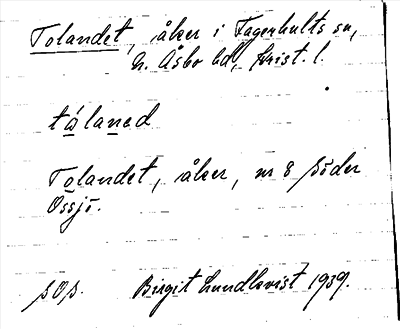 Tolandet, åker i Fagerhults sn,
N. Åsbo hd, Krist. l.
tålaned
Tolandet, åker, nr 8 Söder
Össjö.
Birgit Lundkvist 1939.